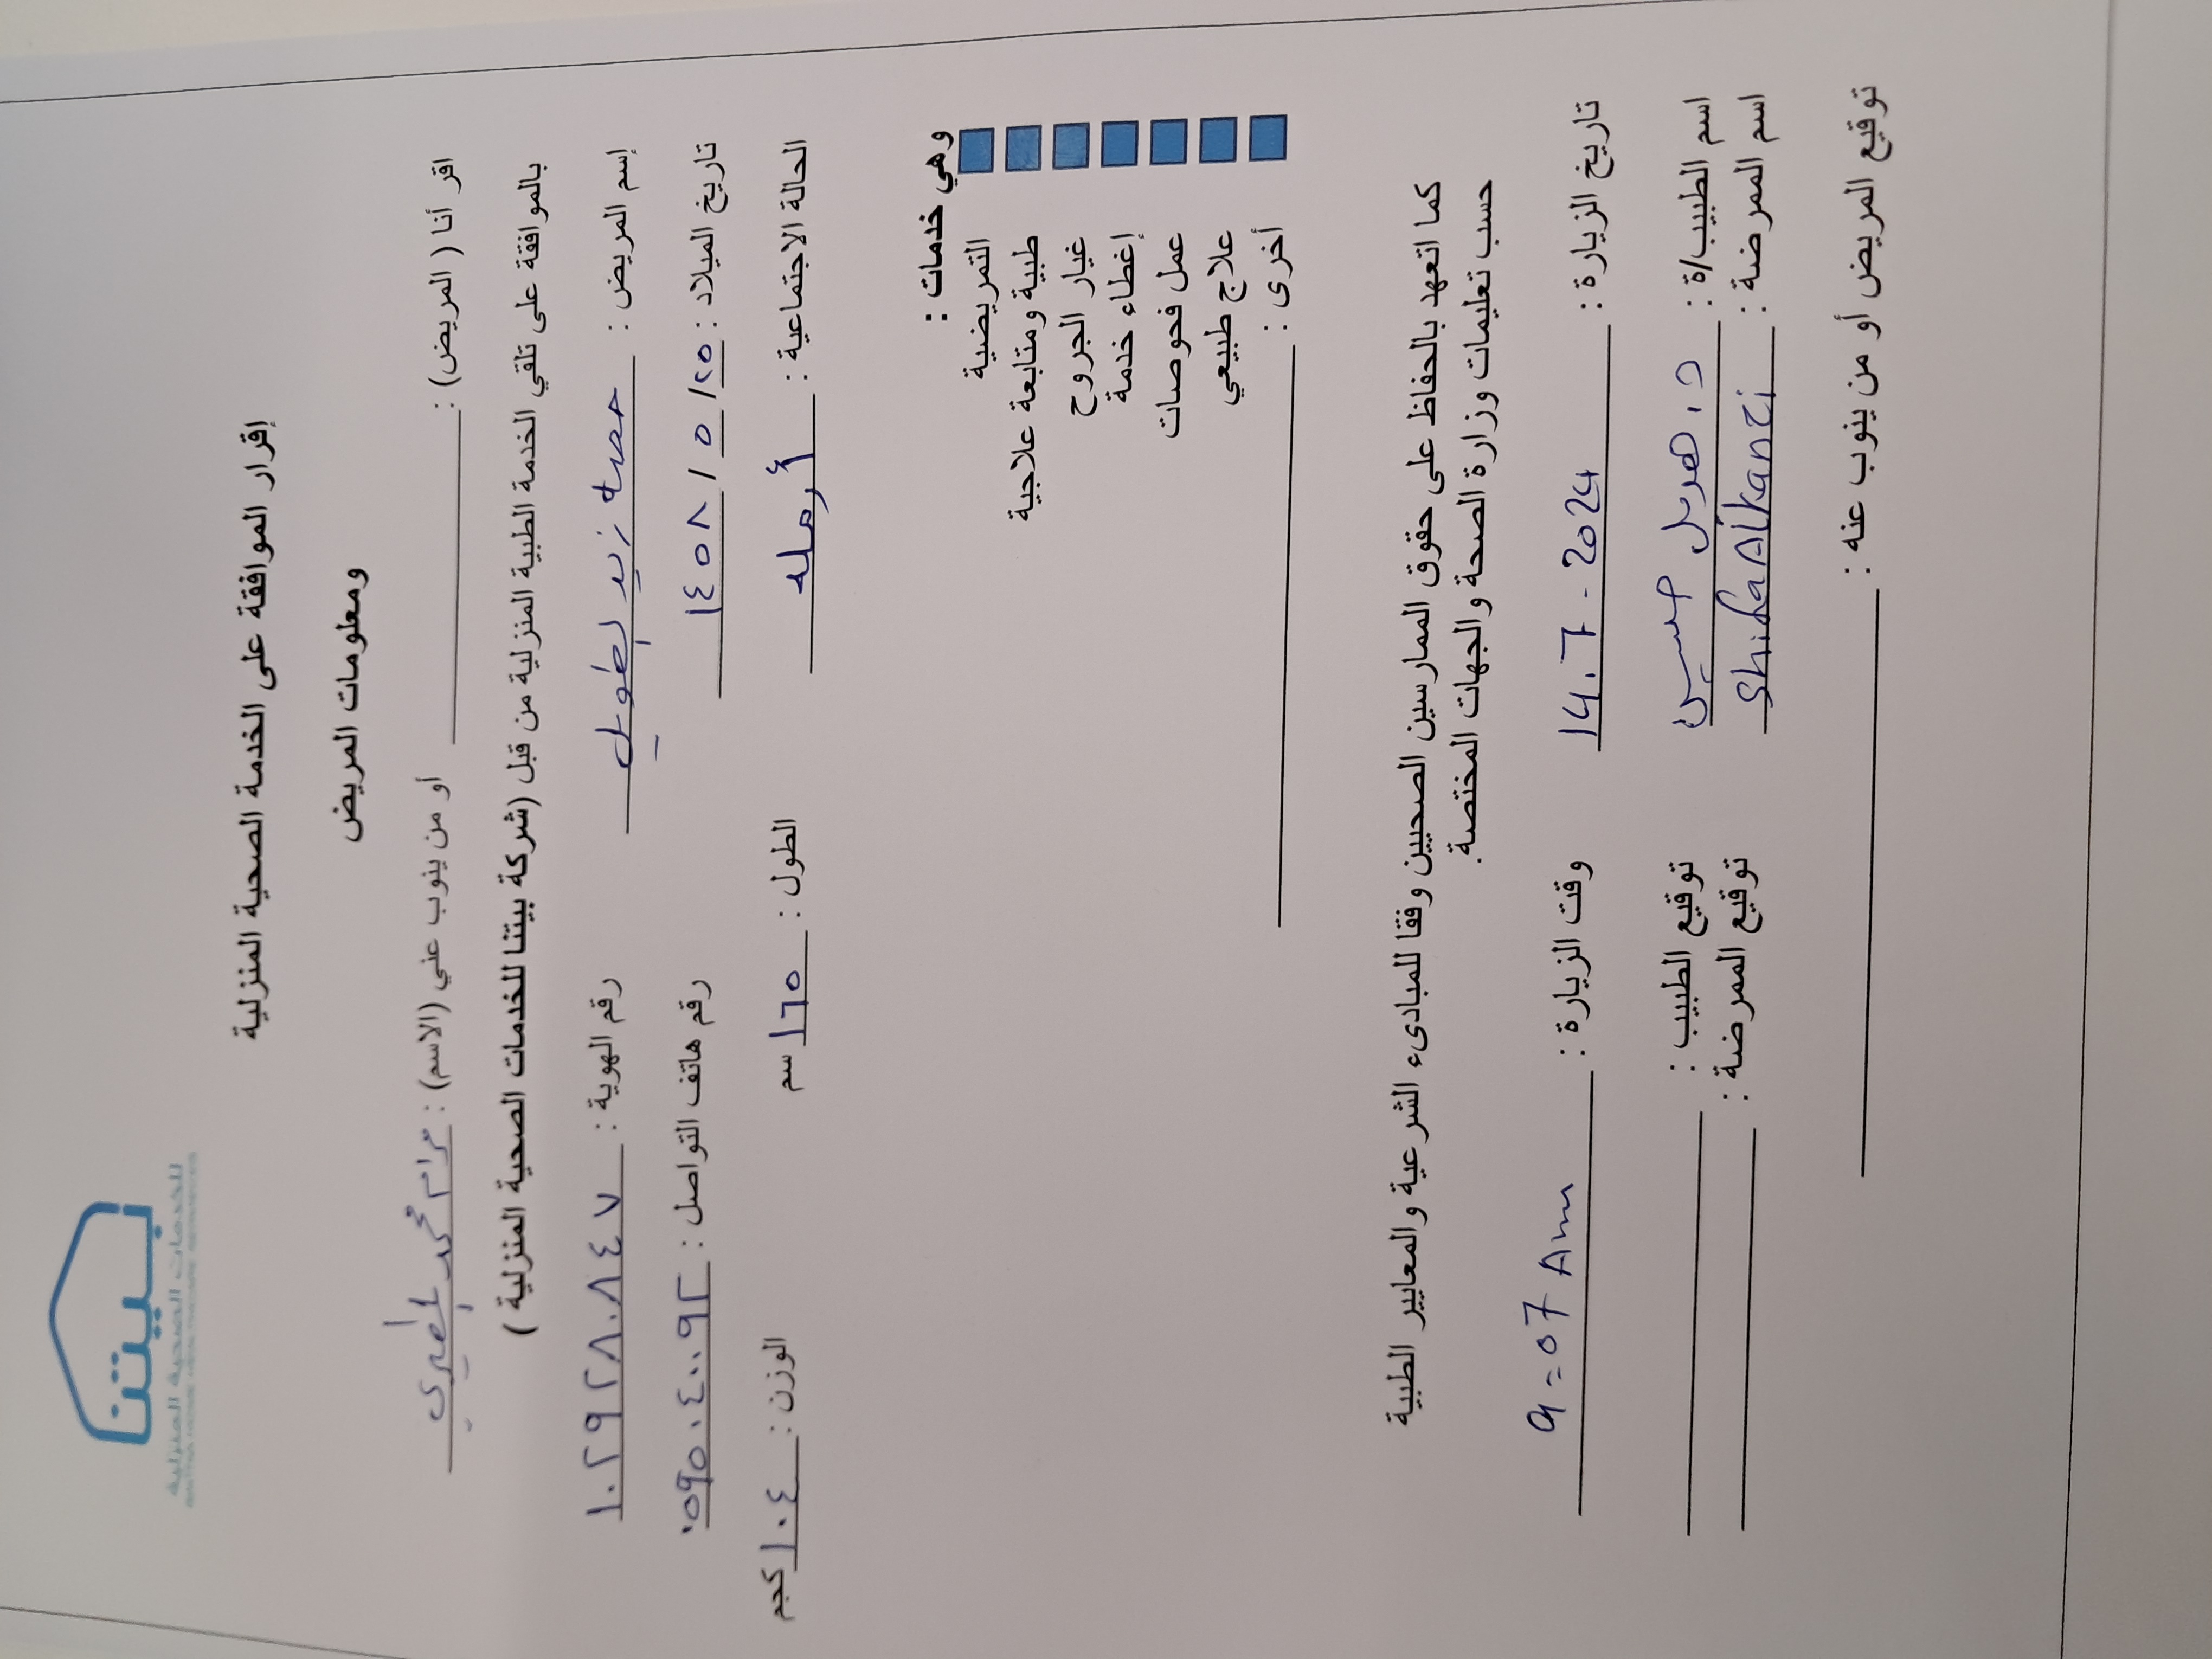 بيتنا
للخدمات الصحية المنزلية
إقرار الموافقة على الخدمة الصحية المنزلية
ومعلومات المريض
اقر أنا ( المريض) : أو من ينوب عني (الاسم) : مرام محمد
بالموافقة على تلقي الخدمة الطبية المنزلية من قبل (شركة بيتنا للخدمات الصحية المنزلية )
إسم المريض : حصه زيد الطويل رقم الهوية : ١٠٢٩٢٨٠٨٤٧
تاريخ الميلاد : ٢٥/ ٥ / ١٤٠٨ رقم هاتف التواصل : ٠٥٩٥٠٤٠٠٩٢
الحالة الاجتماعية : أرمله الطول : ١٦٥ سم الوزن : ١٠٤ كجم
وهي خدمات :
التمريضية
طبية ومتابعة علاجية
غيار الجروح
إغطاء خدمة
عمل فحوصات
علاج طبيعي
أخرى :
كما اتعهد بالحفاظ على حقوق الممارسين الصحيين وفقا للمبادىء الشرعية والمعايير الطبية
حسب تعليمات وزارة الصحة والجهات المختصة.
تاريخ الزيارة : 14.7-2024 وقت الزيارة : 9=07 Am
اسم الطبيب/ة : د. هديل حسين توقيع الطبيب :
اسم الممرضة : Shifa Alkanzi توقيع الممرضة :
توقيع المريض أو من ينوب عنه :